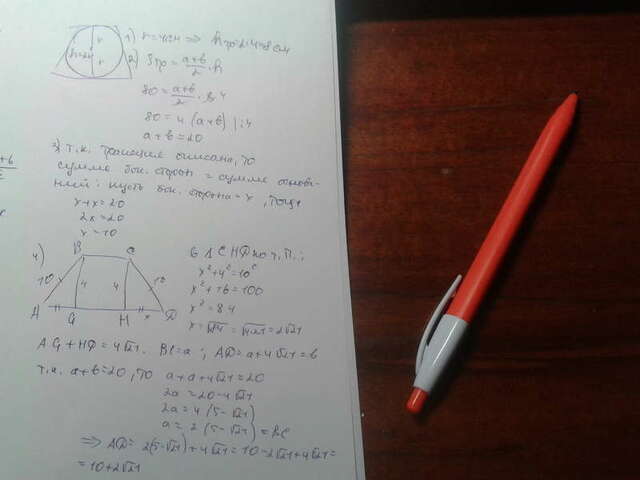 1) r=4см => hтр=2·4=8 см
h=2r
r
r
2) Sтр = a+b/2 · h
80 = a+b/2 · 8
80 = 4·(a+b) |:4
a+b=20
3) т.к. трапеция описана, то
сумма бок. сторон = сумме основа-
ний: пусть бок. сторона = x, тогда
x+x=20
2x=20
x=10
4)
B C
10 4 4 10
A G H x D
б ΔCHD по т. П.:
x²+4²=10²
x²+16=100
x²=84
x=√84=√4·21=2√21
AG+HD=4√21. BC=a; AD=a+4√21=b
т.к. a+b=20, то a+a+4√21=20
2a=20-4√21
2a=4(5-√21)
a=2(5-√21)=BC
=> AD=2(5-√21)+4√21=10-2√21+4√21=
=10+2√21